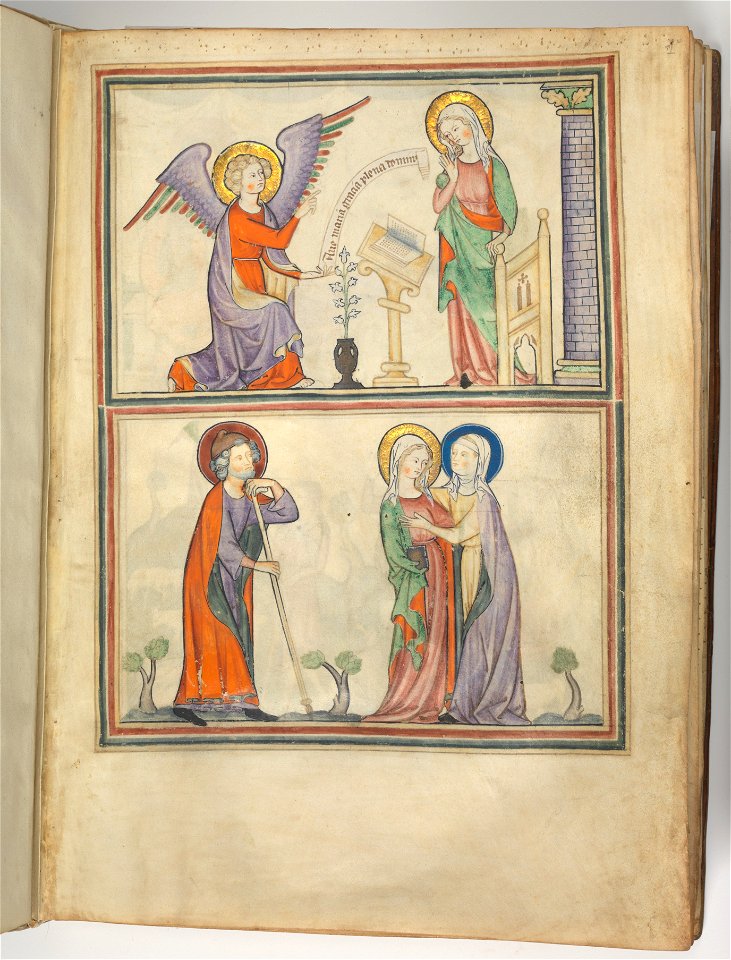 Aue maria gracia plena domin